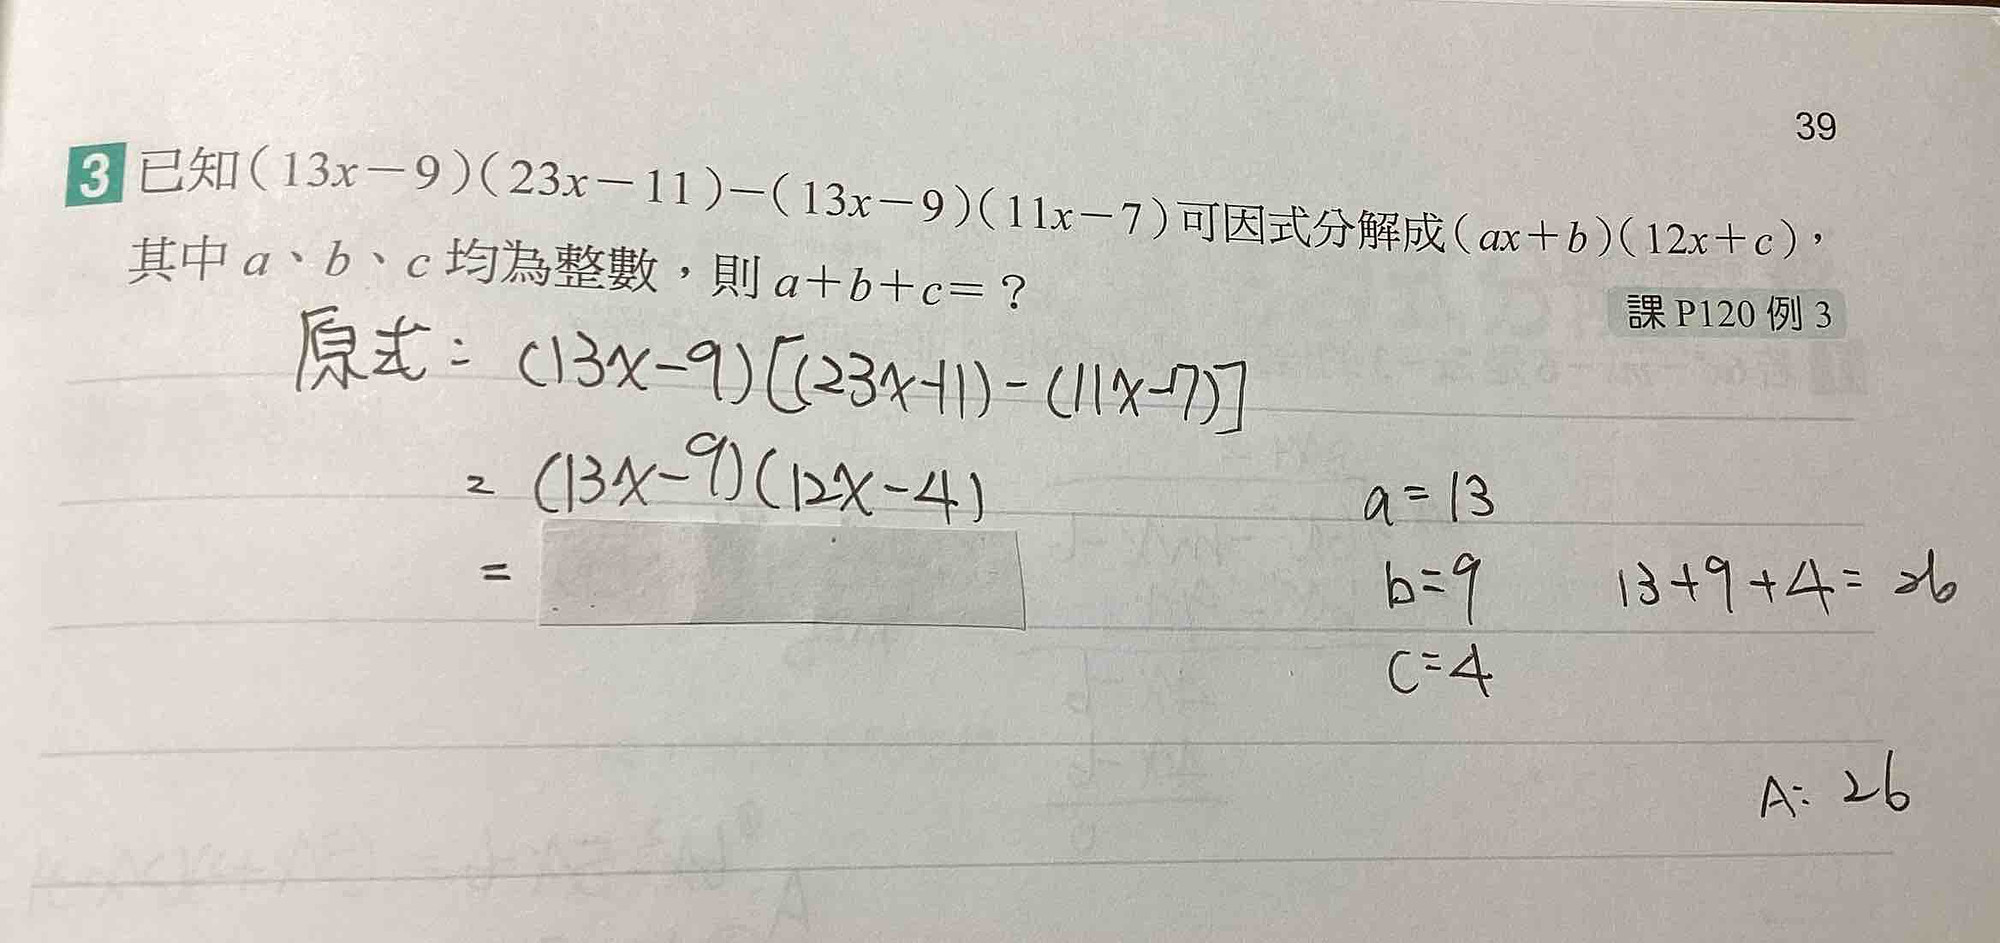 39
3 已知(13x−9)(23x−11)−(13x−9)(11x−7)可因式分解成(ax+b)(12x+c)，
其中a、b、c均為整數，則a+b+c=？
課P120例3
原式= (13x-9)[(23x-11)-(11x-7)]
= (13x-9)(12x-4)
=
a=13
b=9
13+9+4=26
c=4
A: 26